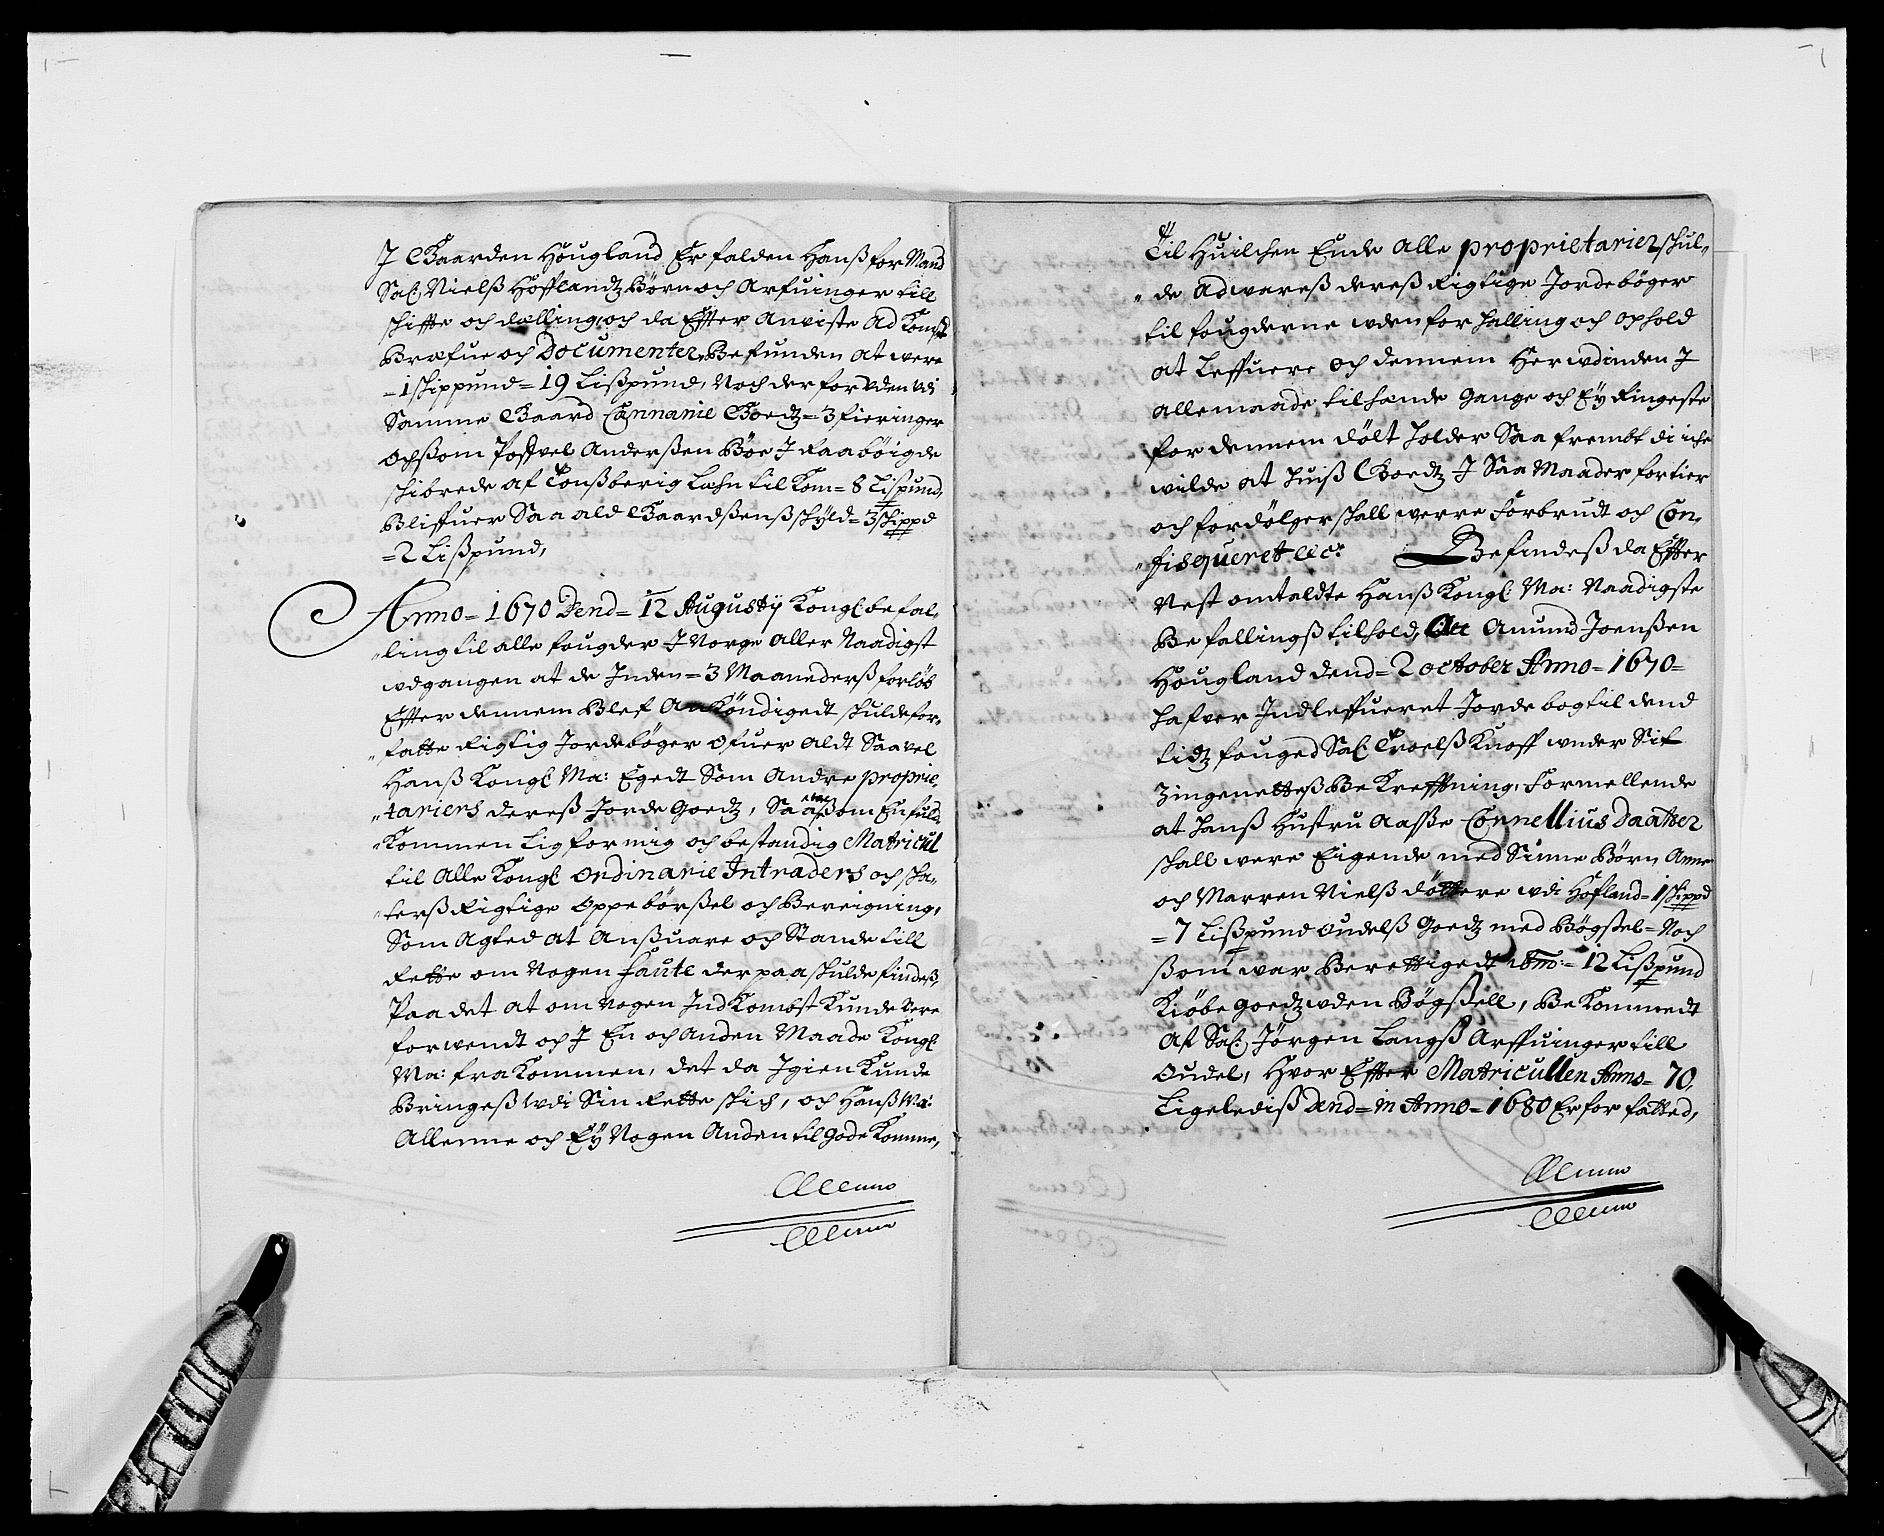 J Gaarden Hougland Er falden Hanß for Mand
Sal: Nielß Hofflandtz Børn och Arfuinger till
schiffte och dælling, och da Effter Anviste Ad Komst
Bræfue och Documenter, Befunden At were
= 1 schippund = 19 Lißpund, Noch der foruden udi
Samme Gaard Cannanie Goedtz = 3 fieringer
ochsom Poffvel Anderßen Böe J Raabøigde
schibrede af Tonßberig Læhn til Kom = 8 Lißpund,
Bliffuer Saa ald Gaardßenß schyld = 3 schippd
= 2 Lißpund,
Anno = 1670 Dend = 12 Augustij Kongl: befal,,
,,ling til alle fougder J Norge Aller Naadigst
udgangen at de Inden = 3 Maanederß forløb
Effter dennem Blef An Kondigedt skulde for,,
,,fatte Rigtig Jordebøger Ofuer Aldt Saavel
Hanß Kongl: Ma: Egedt Som Andre proprie,,
,,tariers dereß Jorde Goedtz, Saa ßom En fuld,,
,,Kommen Lig formig och bestandig Matricul
til Alle Kongl: Ordinarie Intraders och ska,,
,,terß Rigtige Oppebørßel och Bereigning,
Som Agted At Anßuare och Stande till
Rette om Nogen faute der paa skulde findeß,
Paa det At om Nogen Ind Kombst Kunde Vere
forwendt och J En och Anden Maade Kongl:
Ma: fra Kommen, det da Igien Kunde
Bringeß udi Sin Rette skich, och Hanß Ma:
Allenne och Ey Nogen Anden til gode Komme,
Til Huilchen Ende Alle proprietarier skul,,
,,de Adwareß dereß Rigtige Jordebøger
til fougderne uden forhalling och ophold
at Leffuere och dennem Her udinden J
Alle maade tilhænde Gange och Ey Ringeste
for dennem dölt holder Saa frembt di iche
wilde at huiß Goedtz J Saa Maader fortier
och fordølger skall werre Forbrudt och Con,,
,,fisqueret etc: Befindeß da Effter
Nest omtaldte Hanß Kongl: Ma: Naadigste
Befallingß tilhold, At Amund Joenßen
Hougland dend = 2 october Anno = 1670 =
hafver Indleffueret Jorde bog til dend
tidtz fouged Sal: Troelß Knoff under Sit
Zingenetteß Be Kreffning, Formellende
at hanß Hustru Aaße Cornellius daatter
skall were Eigende med Sinne Børn Anne
och Marren Nielß döttere udi Hofland = 1 schippd
= 7 Lißpund Oudelß Goedtz med Bøgßel = Noch
ßom war Berettigedt = 12 Lißpund
Kiøbe goedtz uden Bøgßell, Be Kommedt
Af Sal: Jörgen Langß Arffuinger till
Oudel, Hvor Effter Matricullen Anno = 70,
Ligelediß Dend = in Anno = 1680 Er for fatted,